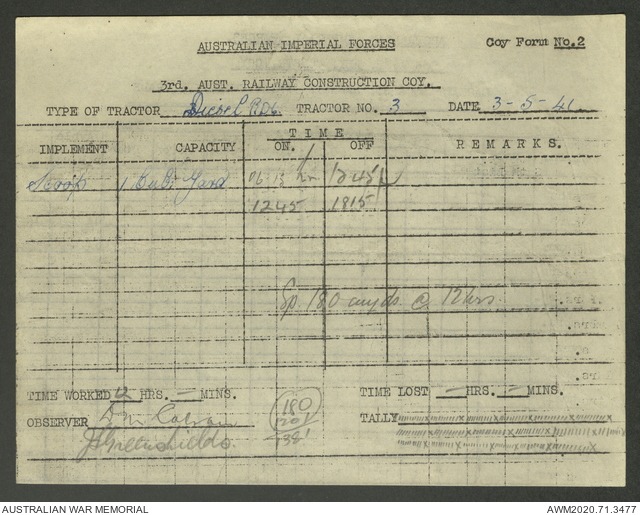 AUSTRALIAN IMPERIAL FORCES Coy Form No.2
3rd. AUST. RAILWAY CONSTRUCTION COY.
TYPE OF TRACTOR Diesel RD6. TRACTOR NO. 3 DATE 3-5-41
TIME
IMPLEMENT CAPACITY ON. OFF REMARKS.
Scoop 1 Cub. Yard 0615 hr 1245
1245 1815
Sp 180 cuyds @ 12hrs.
TIME WORKED 12 HRS. — MINS. TIME LOST — HRS. — MINS.
OBSERVER 180 TALLY
J Greenshields.
AUSTRALIAN WAR MEMORIAL AWM2020.71.3477